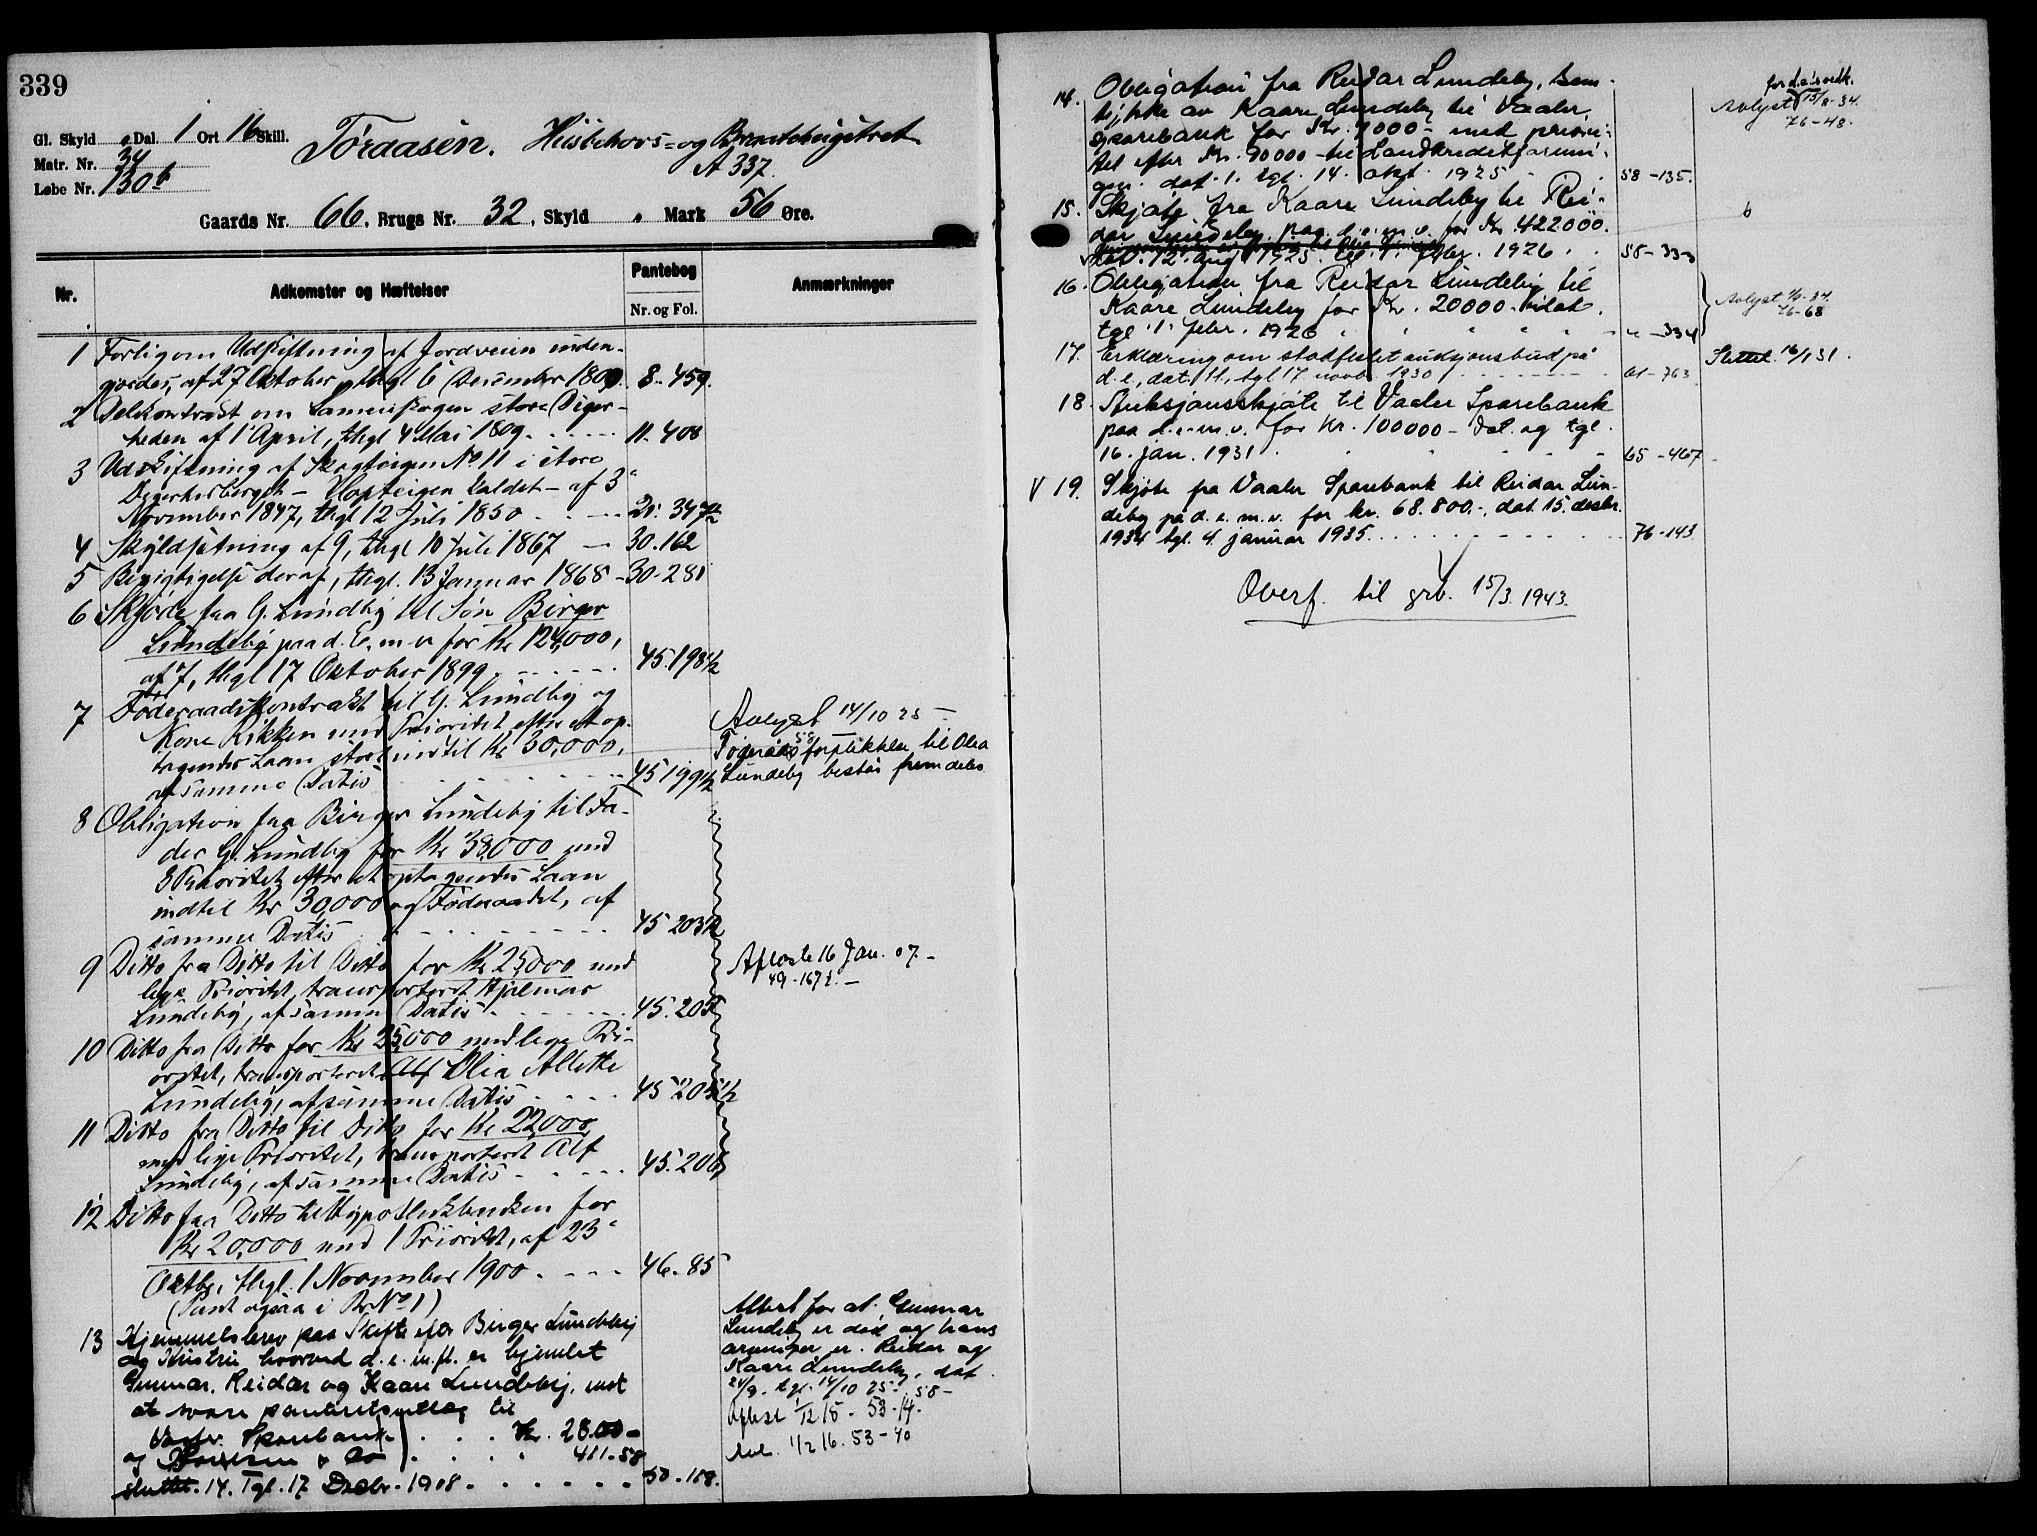 339
Gl. Skyld " Dal. 1 Ort 16 Skill.
Matr. Nr. 34
Løbe Nr. 130b
Toraasen. Husbehovs- og Brændebeitstret
A 337.
Gaards Nr. 66, Brugs Nr. 32, Skyld " Mark 56 Øre.
Nr. Adkomster og Hæftelser Pantebog Anmærkninger
Nr. og Fol.
1 Forlig om Udskiftning af Jordveien inden-
gjærdes, af 27 Oktober, thgl 6 December 1800. 8-459.
2 Delekontrakt om Sameieskogen store Diger-
heden af 1 April, thgl 4 Mai 1809. 11-408
3 Udskiftning af Skogteigen No 11 i store
Digerhesberget - kaldet - af 3
November 1847, thgl 12 Juli 1850 21. 347b
4 Skyldsætning af 9, thgl 10 Juli 1867 30.162
5 Berigtigelse deraf, thgl. 13 Januar 1868 - 30-281
6 Skjøde fra G. Lundeby til Søn Birger
Lundeby paa d. E. m v for Kr 124,000,
af 7, thgl 17 Oktober 1899. 45.198½
7 Føderaadskontrakt til G. Lundeby og
Kone Rikken med Prioritet efter et op-
tagendes Laan stort indtil Kr 30,000,
af samme Datis 45 199½
Avlyst 14/10 25
58
Føderådsforpliktelse til Olea
Lundeby består fremdeles
8 Obligation fra Birger Lundeby til Fa-
der G. Lundeby for Kr 38,000 med
Prioritet efter et optagendes Laan
indtil Kr 30,000 og Føderaadet, af
samme Datis 45 203½
9 Ditto fra Ditto til Ditto for Kr 25,000 med
lige Prioritet, transporteret Hjalmar
Lundeby, af samme Datis 45.205
Aflæste 16 Jan. 07-
49-167½.
10 Ditto fra Ditto for Kr 25,000 med lige Pri-
oritet, transporteret Olea Alette
Lundeby, af samme Datis 45 205½
11 Ditto fra Ditto til Ditto for Kr 22,000
med lige Prioritet, transporteret Alf
Lundeby, af samme Datis 45.206
12 Ditto fra Ditto til Hypothekbanken for
Kr 20,000 med 1 Prioritet, af 23
Oktbr, thgl. 1 November 1900. 46-85
(Pant ogsaa i Br No 1)
13 Hjemmelsbrev paa Skifte efter Birger Lundeby
og Hustru hvorved d. e. m. fl. er hjemlet
Gunnar, Reidar og Kaare Lundeby, mot
at svare panteretsutlæg til
Vaaler Sparebank Kr. 28.00-
og & Co 411-58
sluttet. 14. Tgl. 17 Decbr. 1908 50-108.
Attest for at Gunnar
Lundeby er død og hans
arvinger er Reidar og
Kaare Lundeby, dat
24/9. tgl. 14/10 25 58-
Aflæst 1/12 15 - 53-14.
Avl. 1/2 16. 53-40
14. Obligation fra Reidar Lundeby, sam-
tykke av Kaare Lundeby til Vaaler
Sparebank for Kr. 9000- med priori-
tet efter Kr. 90000- til Landkreditforeni-
gen. dat. 1. tgl. 14. okt. 1925 58-135.
for d.e's vedk.
Avlyst 15/8-34.
76-48.
15. Skjøte fra Kaare Lundeby til Rei-
dar Lundeby paa d. e. m. v. for Kr. 422000.
dat. 12. aug 1925. tgl. 1. febr. 1926 58-333
16. Obligation fra Reidar Lundeby til
Kaare Lundeby for Kr. 20000- udat.
tgl. 1. febr. 1926 " -334
Avlyst 34.
76-68
17. Erklæring om stadfestet auksjonsbud på
d. e., dat. 11., tgl 17 novb 1930 61-763
Slettet 16/1 31.
18. Auksjonsskjøte til Vaaler Sparebank
paa d. e. m. v. for kr. 100000- dat. og tgl.
16. jan. 1931 65-467
V 19. Skjøte fra Vaaler Sparebank til Reidar Lun-
deby på d. e. m. v. for kr. 68.800.-, dat. 15. desbr.
1934 tgl. 4. januar 1935. 76-143
Overf. til grb. 15/3. 1943.